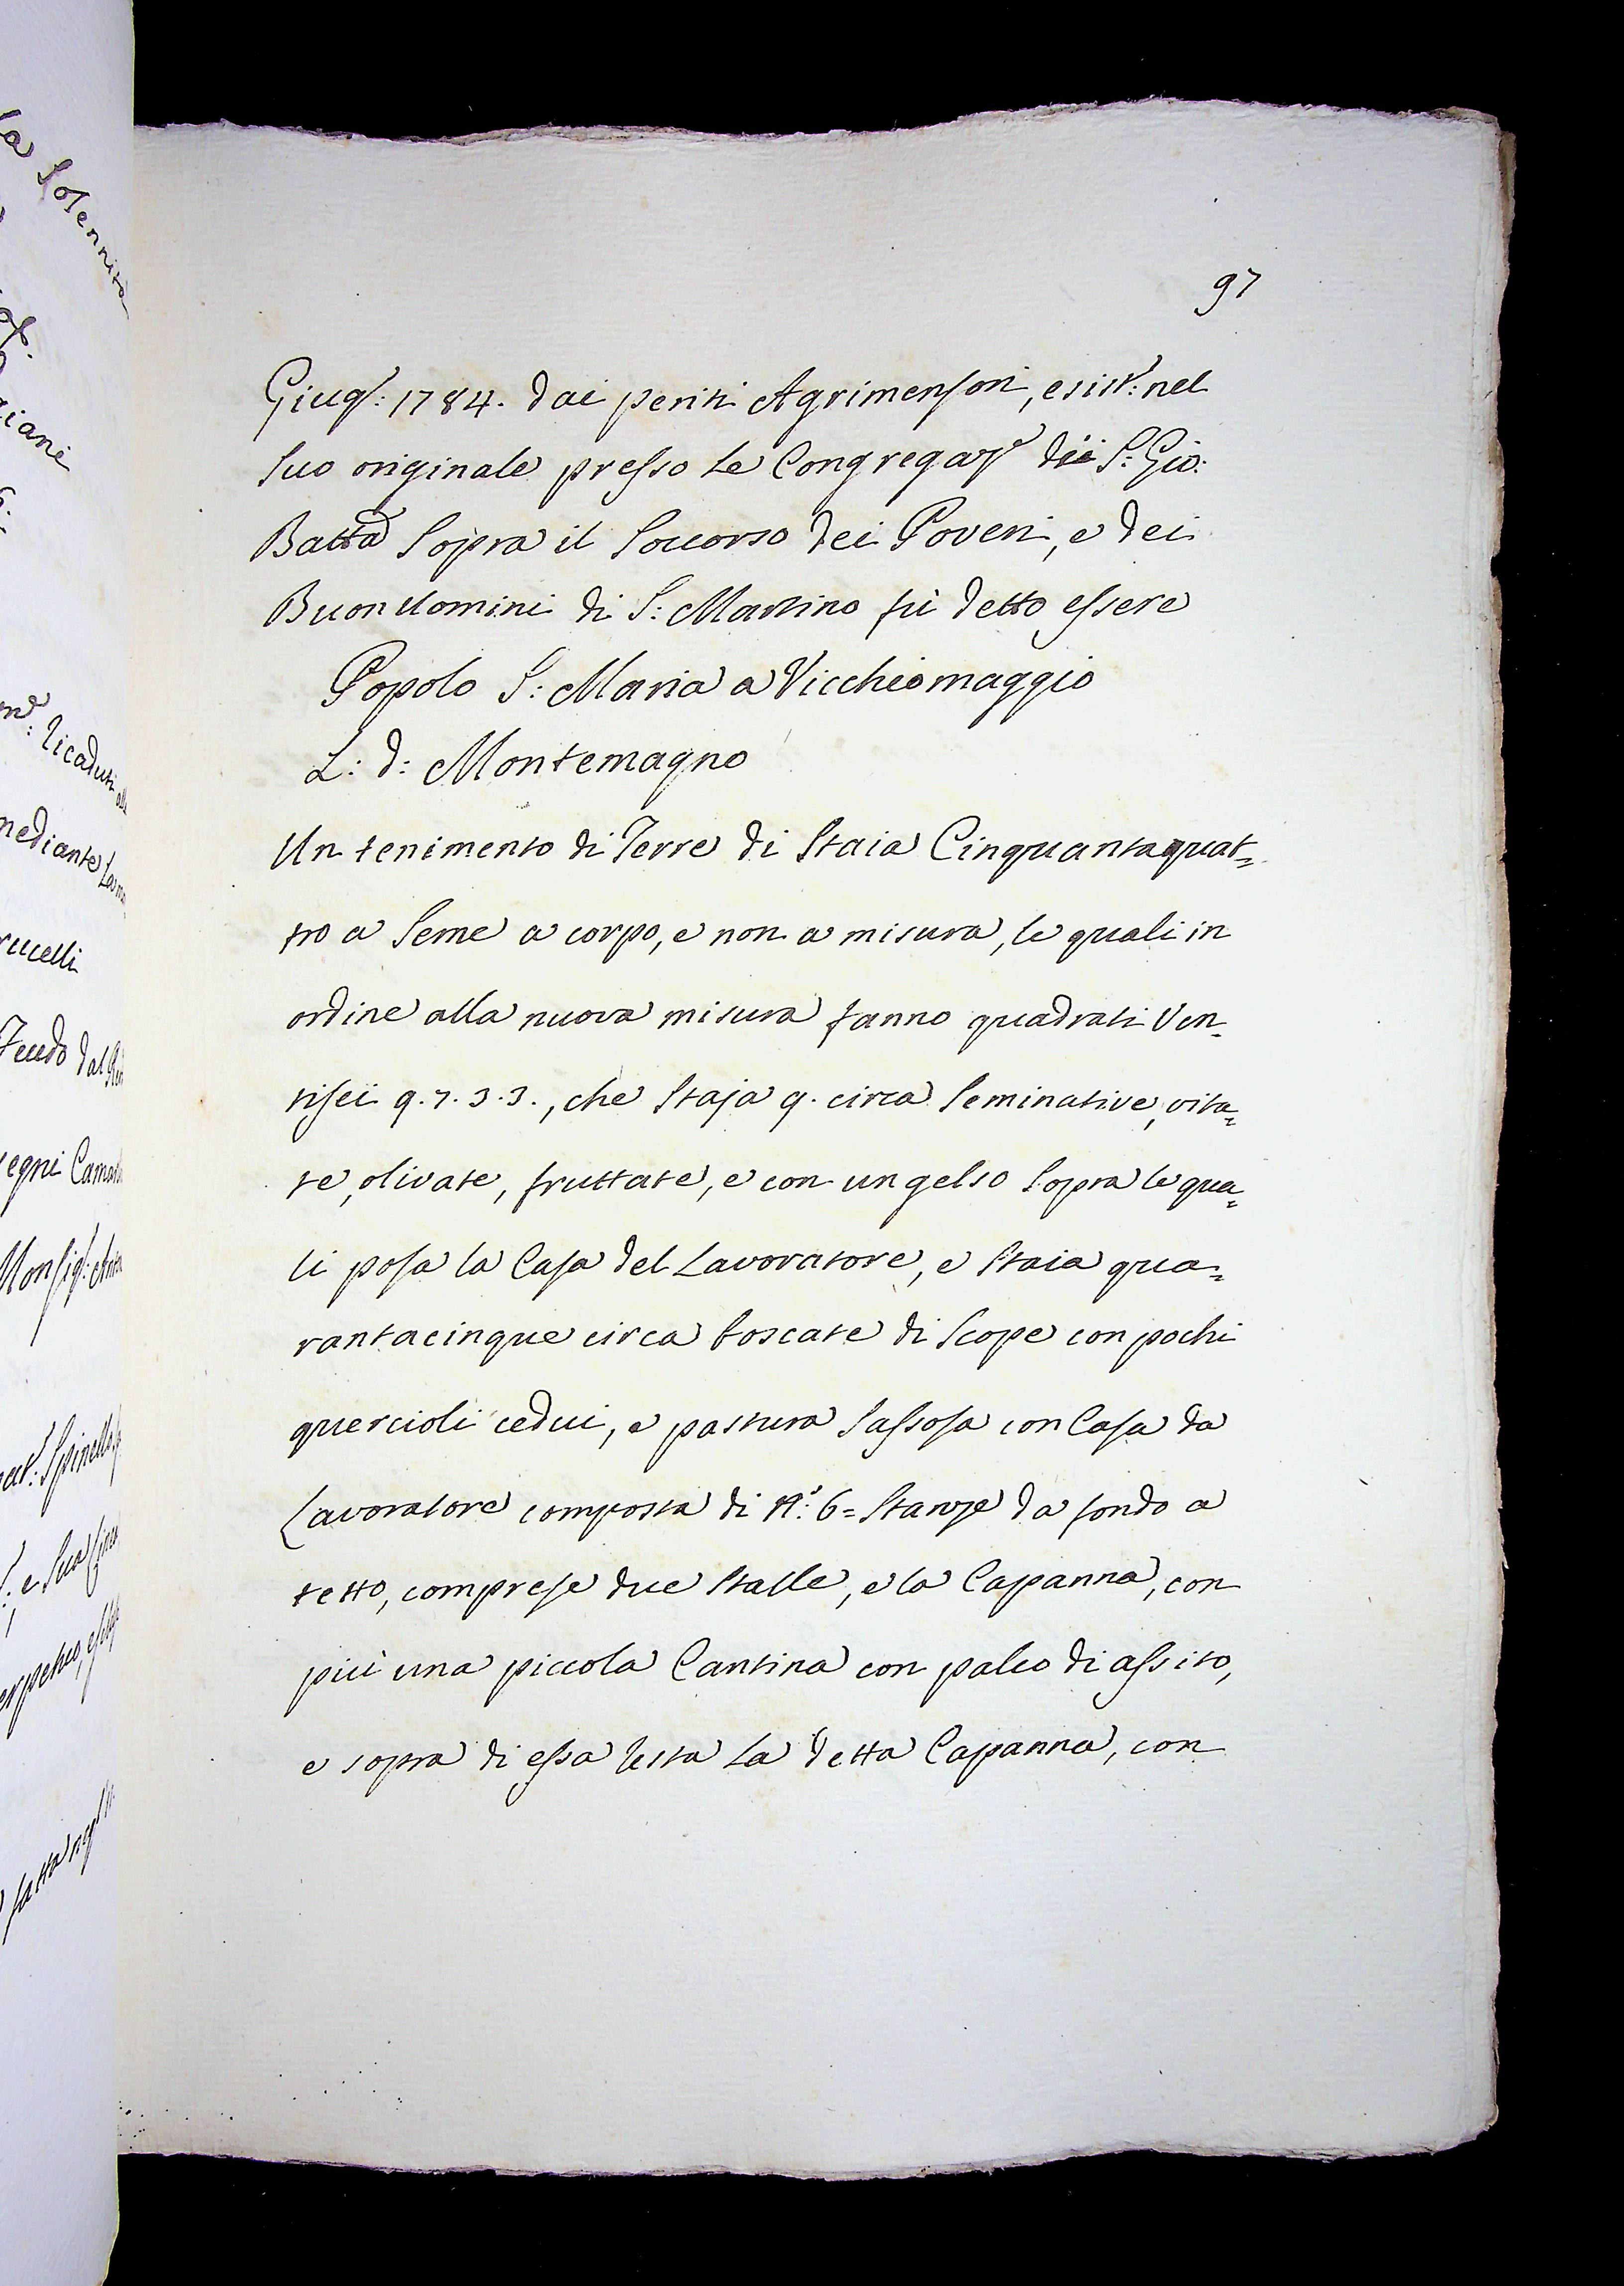 97
Giug.o: 1784. dai periti Agrimensori, esist.: nel
suo originale presso le Congregaz.e di S: Gio:
Batta sopra il soccorso dei Poveri, e dei
Buonuomini di S: Martino fù detto essere
Popolo S: Maria a Vicchiomaggio
L: d: Montemagno
Un tenimento di Terre di Staia Cinquantaquat=
tro a seme a corpo, e non a misura, le quali in
ordine alla nuova misura fanno quadrati Ven=
tisei q. 7. 3. 3., che Staja 9. circa seminative, vita=
te, olivate, fruttate, e con un gelso sopra le qua=
li posa la Casa del Lavoratore, e Staia qua=
rantacinque circa boscate di Scope con pochi
quercioli cedui, e pastura sassosa con Casa da
Lavoratore composta di N.o: 6= Stanze da fondo a
tetto, comprese due Stalle, e la Capanna, con
più una piccola Cantina con palco di assito,
e sopra di essa resta la detta Capanna, con